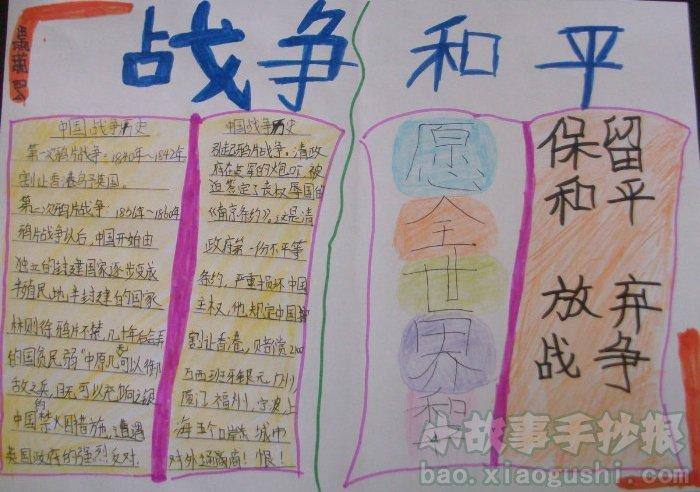 战争 和平
中国战争历史
第一次鸦片战争：1840年～1842年
割让香港岛予英国。
第二次鸦片战争：1856年～1860年
鸦片战争以后，中国开始由
独立的封建国家逐步变成
半殖民地半封建的国家
林则徐鸦片不禁，几十年后后
的国贫民弱"中原几可以御
敌之兵，且无可以充饷之银
中国禁火因措施，遭遇
英国政府的强烈反对.
中国战争历史
引起鸦片战争。清政
府在英军的炮口下，被
迫签定了丧权辱国的
《南京条约》。这是清
政府第一份不平等
条约，严重损坏中国
主权，他规定中国
割让香港，贝赔偿2100
万西班牙银元，广州，
厦门，福州，宁波，上
海五个口岸，城市
对外通商！恨！
愿
全
世
界
和
保留
和平
放弃
战争
小故事手抄报
bao.xiaogushi.com